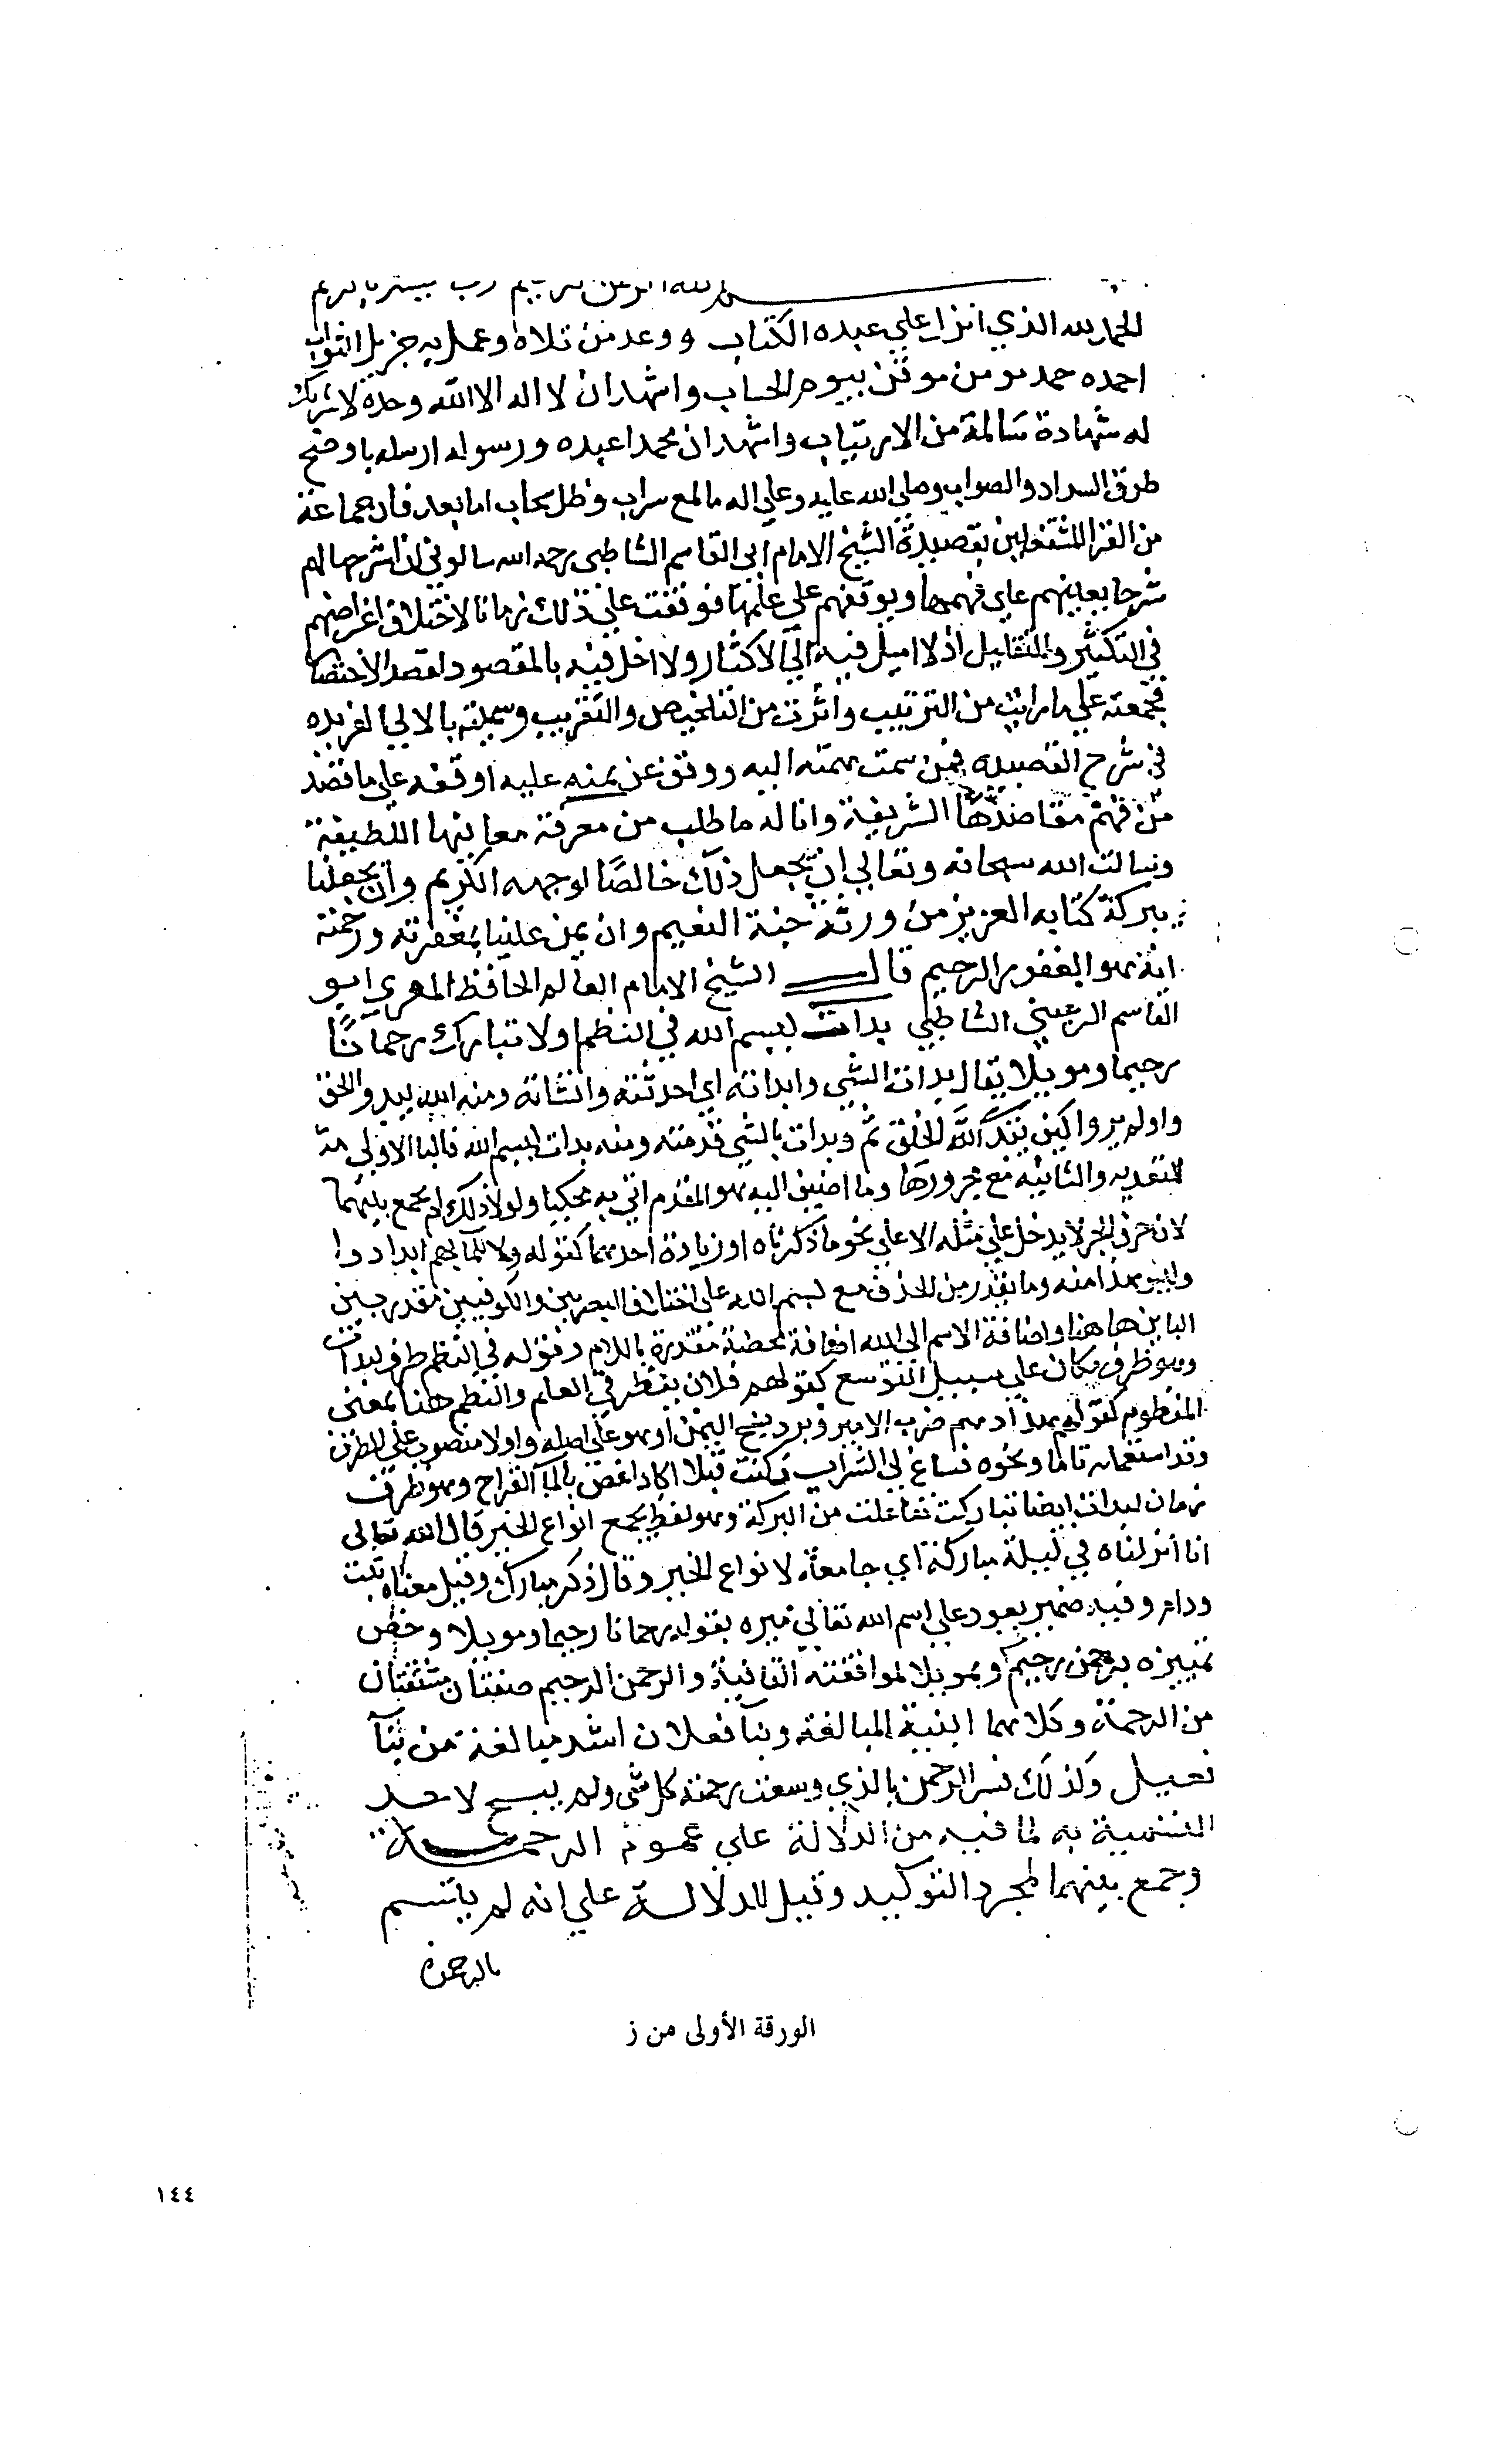 بسم الله الرحمن الرحيم رب يسر يا كريم
الحمد لله الذي انزل علي عبده الكتاب ووعد من تلاه وعمل به جزيل الثواب
احمده حمد مومن موقن بيوم الحساب واشهد ان لا اله الا الله وحده لا شريك
له شهادة سالمة من الارتياب واشهد ان محمدا عبده ورسوله ارسله باوضح
طرق السداد والصواب وصلي الله عليه وعلي اله ما لمع سراب وظل سحاب اما بعد فان جماعة
من القرا المشتغلين بقصيدة الشيخ الامام ابي القاسم الشاطبي رحمه الله سالوني ان اشرحها لهم
شرحا يعينهم علي فهمها ويوقفهم علي علمها فوقفت علي ذلك زمانا لاختلاف اغراضهم
في التكثير والتقليل اذ لا اميل فيه الي الاكثار ولا اخل فيه بالمقصود لقصد الاختصار
فجمعته علي ما رايت من الترتيب واثرت من التلخيص والتقريب وسميته بالالي الفريده
في شرح القصيده فمن سمت همته اليه ووقف عن يمنه عليه اوقفه علي ما قصد
من فهم مقاصدها الشريفة وانا له ما طلب من معرفة معانيها اللطيفة
وسالت الله سبحانه وتعالي ان يجعل ذلك خالصًا لوجهه الكريم وان يجعلنا
ببركة كتابه العزيز من ورثة جنة النعيم وان يمن علينا بمغفرته ورحمته
انه هو الغفور الرحيم قال الشيخ الامام العالم الحافظ المقري ابو
القاسم الرعيني الشاطبي بدات ببسم الله في النظم اولا تبارك رحمانًا
رحيما وموىلا يقال بدات الشي وابداته اي احدثته وانشاته ومنه الله يبدو الخلق
واولم يروا كيف يبدا الله الخلق ثم وبدات بالشي قدمته ومنه بدات ببسم الله فالبا الاولي منه
للتعديه والثانيه مع مجرورها وما اضيف اليه هو المقدم اتي به محكيا ولولا ذلك لم يجمع بينهما
لان حرف الجر لا يدخل علي مثله الا علي نحو ما ذكرناه او زيادة احدهما كقوله ولا للما بهم ابدا دوا
وليس هذا منه وما يقدر من الحذف مع بسم الله علي اختلاف البصريين والكوفيين مقدر بين
الباين هاهنا واضافة الاسم الي الله اضافة محضة مقدرة باللام وقوله في النظم ظرف لبدات
وهو ظرف مكان علي سبيل التوسع كقولهم فلان ينظر في العلم والنظم هنا بمعني
المنظوم كقولهم هذا درهم ضرب الامير وبرد نسج اليمن او هو علي اصله واولا منصوب علي الظرف
وقد استعمله تاما ونحوه فساغ لي الشراب وكنت قبلا اكاد اغص بالما القراح وهو ظرف
زمان لبدات ايضا تباركت تفاعلت من البركة وهو لفظ يجمع انواع الخير قال الله تعالي
انا انزلناه في ليلة مباركة اي جامعة لانواع الخير وقال ذكر مبارك وقيل معناه ثبت
ودام وفيه ضمير يعود علي اسم الله تعالي ميزه بقوله رحمانا رحيما وموىلا وخص
تمييزه برحمن رحيم وبموىلا لموافقته القافية والرحمن الرحيم صفتان مشتقتان
من الرحمة وكلاهما ابنية المبالغة وبنآ فعلان اشد مبالغة من بنآ
فعيل وكذلك فسر الرحمن بالذي وسعت رحمته كل شي ولم يبح لاحد
التسمية به لما فيه من الدلالة علي عموم الرحمة
وجمع بينهما لمجرد التوكيد وقيل للدلالة علي انه لم يتسم
بالرحمن
الورقة الأولى من ز
١٤٤